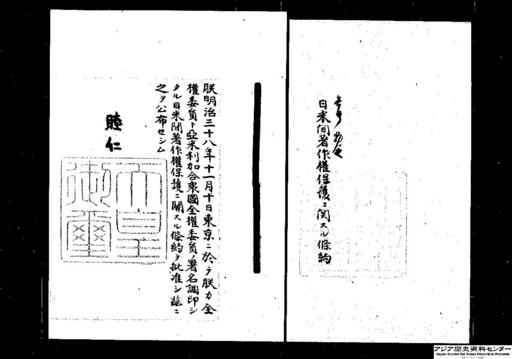 日米間著作權保護ニ関スル條約
朕明治三十八年十一月十日東京ニ於テ朕カ全
權委員ト亞米利加合衆國全權委員ノ署名調印シ
タル日米間著作權保護ニ關スル條約ヲ批准シ茲ニ
之ヲ公布セシム
睦仁
天皇
御璽
アジア歴史資料センター
Japan Center for Asian Historical Records